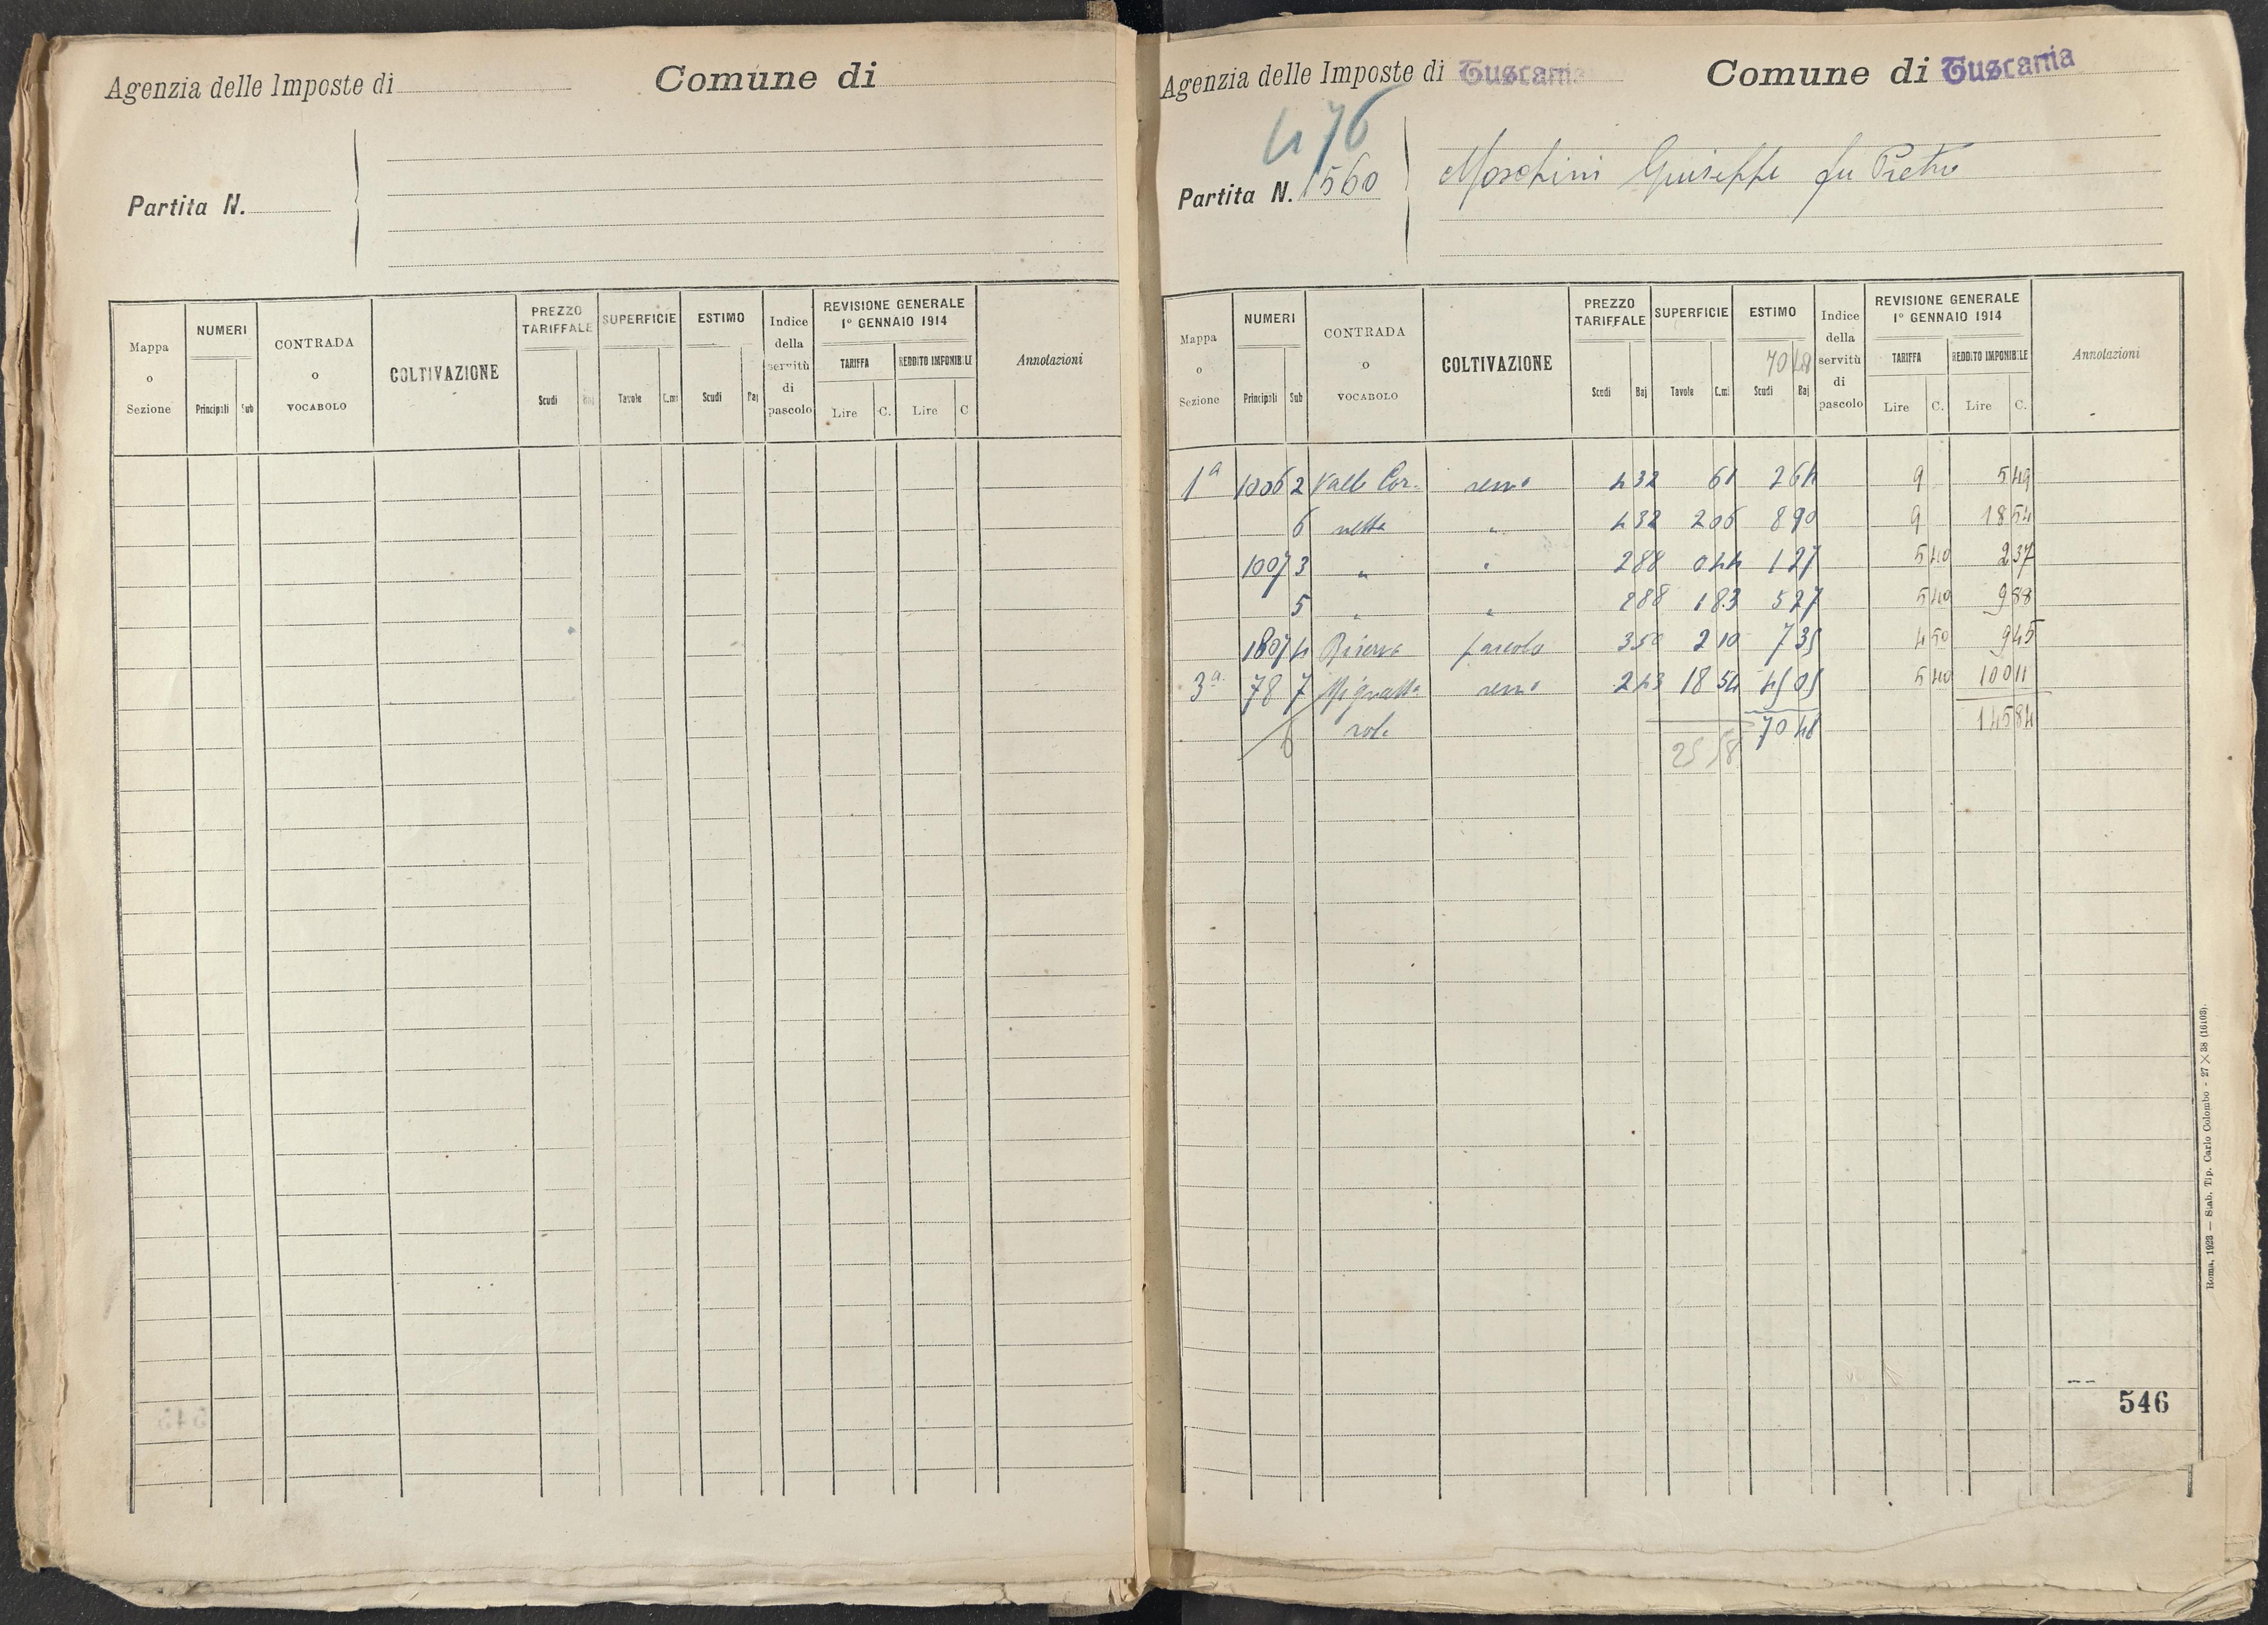 Agenzia delle Imposte di
Comune di
Partita N.
Mappa o Sezione
NUMERI
Principali Sub
CONTRADA o VOCABOLO
COLTIVAZIONE
PREZZO TARIFFALE
Scudi Baj
SUPERFICIE
Tavole C.mi
ESTIMO
Scudi Baj
Indice della servitù di pascolo
REVISIONE GENERALE
1° GENNAIO 1914
TARIFFA REDDITO IMPONIBILE
Lire C. Lire C
Annotazioni
Agenzia delle Imposte di Tuscania
Comune di Tuscania
476
Partita N. 1560
Moschini Giuseppe fu Pietro
Mappa o Sezione
NUMERI
Principali Sub
CONTRADA o VOCABOLO
COLTIVAZIONE
PREZZO TARIFFALE
Scudi Baj
SUPERFICIE
Tavole C.mi
ESTIMO
70 48
Scudi Baj
Indice della servitù di pascolo
REVISIONE GENERALE
1° GENNAIO 1914
TARIFFA REDDITO IMPONIBILE
Lire C. Lire C.
Annotazioni
1a 1006 2 Valle Cor- semo 4 32 61 2 64 9 5 49
6 netta " 4 32 2 06 8 90 9 18 54
1007 3 " " 2 88 0 44 1 27 5 40 2 37
5 " " 2 88 1 83 5 27 5 40 9 88
1807 4 Riserva pascolo 3 50 2 10 7 35 4 50 9 45
3a 78 7 semo 2 43 18 54 45 05 5 40 100 11
6 70 48 145 84
25 58
546
Roma, 1923 — Stab. Tip. Carlo Colombo - 27 × 38 (16103).